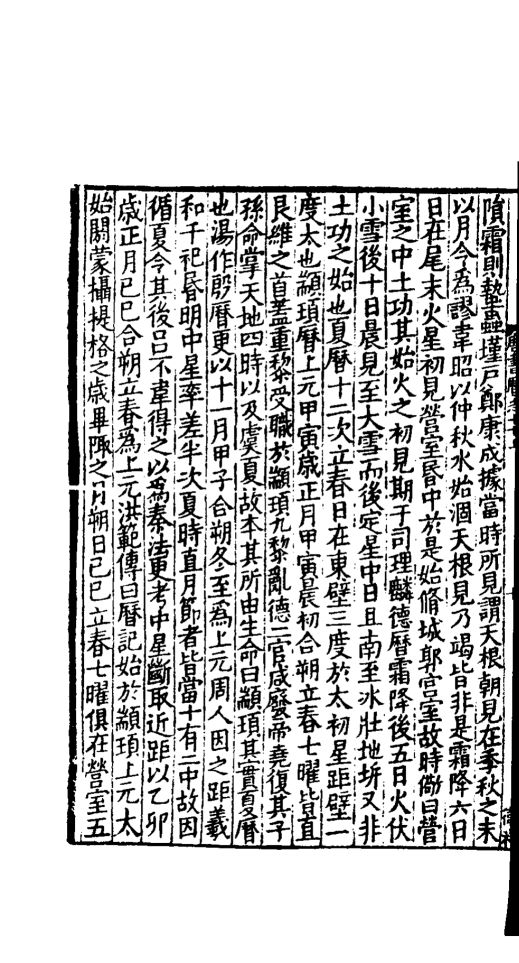 隕霜則蟄蟲墐戸鄭康成據當時所見謂天根朝見在季秋之末
以月令為謬韋昭以仲秋水始涸天根見乃竭皆非是霜降六日
日在尾末火星初見營室昏中於是始脩城郭宫室故時儆曰營
室之中土功其始火之初見期于司理麟德曆霜降後五日火伏
小雪後十日晨見至大雪而後定星中日且南至冰壯地坼又非
土功之始也夏曆十二次立春日在東壁三度於太初星距壁一
度太也顓頊曆上元甲寅歲正月甲寅晨初合朔立春七曜皆直
艮維之首蓋重黎受職於顓頊九黎亂德二官咸廢帝堯復其子
孫命掌天地四時以及虞夏故本其所由生命曰顓頊其實夏曆
也湯作殷曆更以十一月甲子合朔冬至為上元周人因之距羲
和千祀昏明中星率差半次夏時直月節者皆當十有二中故因
循夏令其後吕不韋得之以為秦法更考中星斷取近距以乙卯
歲正月己巳合朔立春為上元洪範傳曰曆記始於顓頊上元太
始閼蒙攝提格之歲畢陬之月朔日己巳立春七曜俱在營室五